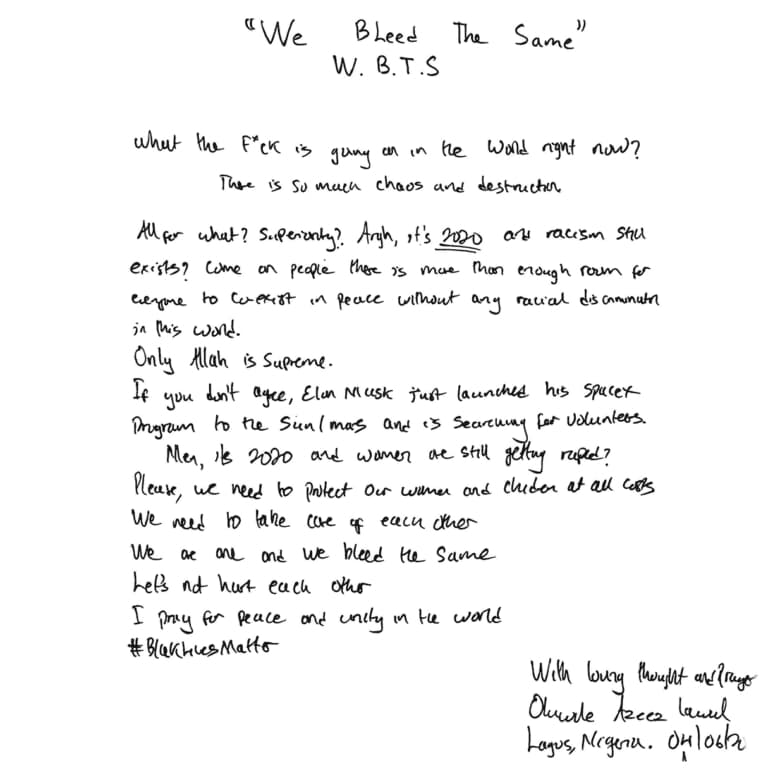 "We Bleed The Same"
W. B.T.S
What the F*ck is going on in the World right now?
There is so much chaos and destruction
All for what? Superiority? Argh, it's 2020 and racism still
exists? Come on people there is more than enough room for
everyone to co-exist in peace without any racial discrimination
in this world.
Only Allah is Supreme.
If you don't agree, Elon Musk just launched his spacex
Program to the Sun/mars and is searching for volunteers.
Men, it's 2020 and women are still getting raped?
Please, we need to protect our women and children at all costs
We need to take care of each other
We are one and we bleed the same
Let's not hurt each other
I pray for peace and unity in the world
#BlackLivesMatter
With loving thought and Prayer
Azeez Lawal
Lagos, Nigeria. 04/06/20